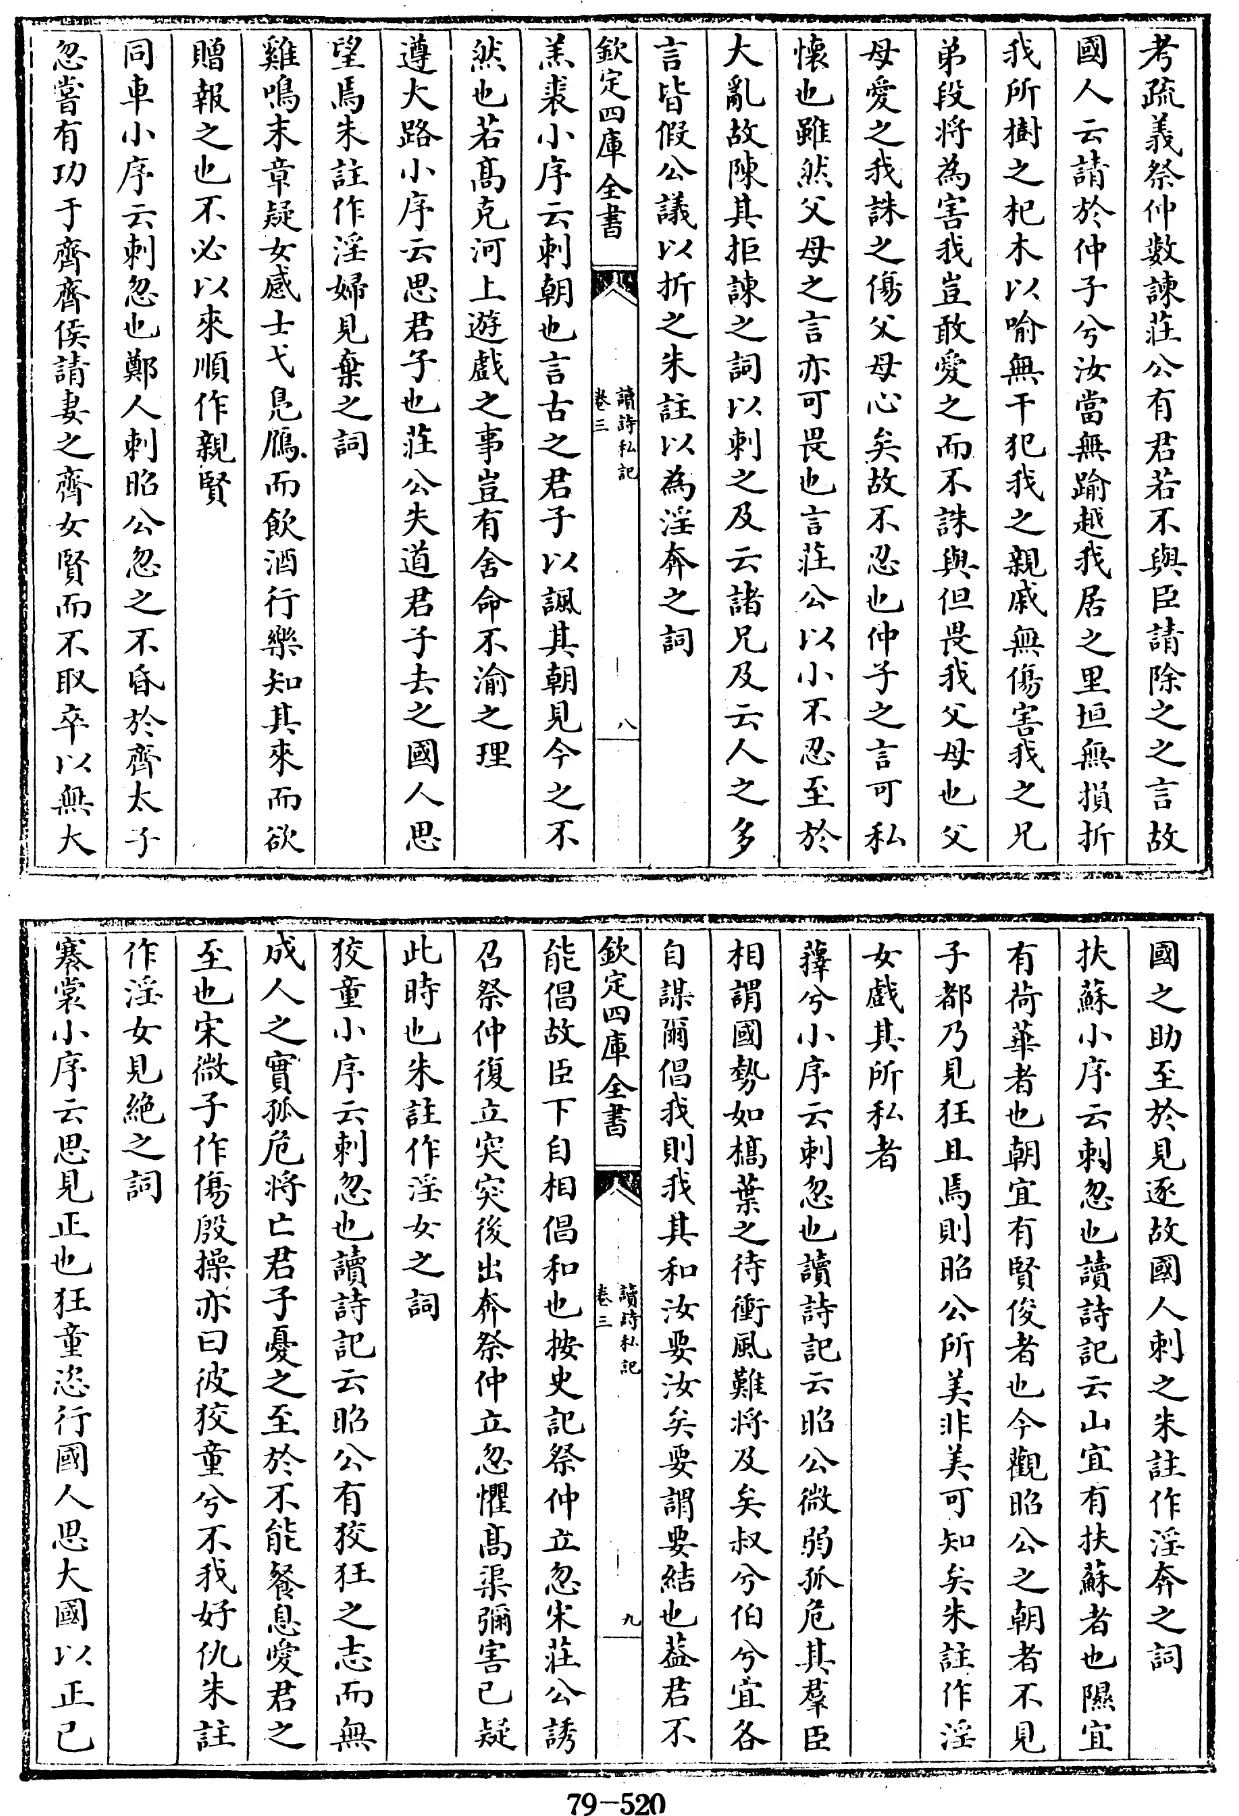 考疏義祭仲數諫莊公有君若不與臣請除之之言故
國人云請於仲子兮汝當無踰越我居之里垣無損折
我所樹之杞木以喻無干犯我之親戚無傷害我之兄
弟段將為害我豈敢愛之而不誅與但畏我父母也父
母愛之我誅之傷父母心矣故不忍也仲子之言可私
懷也雖然父母之言亦可畏也言莊公以小不忍至於
大亂故陳其拒諫之詞以刺之及云諸兄及云人之多
言皆假公議以折之朱註以為淫奔之詞
欽定四庫全書
讀詩私記
卷三
八
羔裘小序云刺朝也言古之君子以諷其朝見今之不
然也若髙克河上遊戲之事豈有舍命不渝之理
遵大路小序云思君子也莊公失道君子去之國人思
望焉朱註作淫婦見棄之詞
雞鳴末章疑女感士弋鳧鴈而飲酒行樂知其來而欲
贈報之也不必以來順作親賢
同車小序云刺忽也鄭人刺昭公忽之不昏於齊太子
忽嘗有功于齊齊侯請妻之齊女賢而不取卒以無大
國之助至於見逐故國人刺之朱註作淫奔之詞
扶蘇小序云刺忽也讀詩記云山宜有扶蘇者也隰宜
有荷華者也朝宜有賢俊者也今觀昭公之朝者不見
子都乃見狂且焉則昭公所美非美可知矣朱註作淫
女戲其所私者
蘀兮小序云刺忽也讀詩記云昭公微弱孤危其羣臣
相謂國勢如槁葉之待衝風難將及矣叔兮伯兮宜各
自謀爾倡我則我其和汝要汝矣要謂要結也葢君不
欽定四庫全書
讀詩私記
卷三
九
能倡故臣下自相倡和也按史記祭仲立忽宋莊公誘
召祭仲復立突突後出奔祭仲立忽懼髙渠彌害已疑
此時也朱註作淫女之詞
狡童小序云刺忽也讀詩記云昭公有狡狂之志而無
成人之實孤危將亡君子憂之至於不能餐息愛君之
至也宋微子作傷殷操亦曰彼狡童兮不我好仇朱註
作淫女見絶之詞
褰裳小序云思見正也狂童恣行國人思大國以正已
79-520